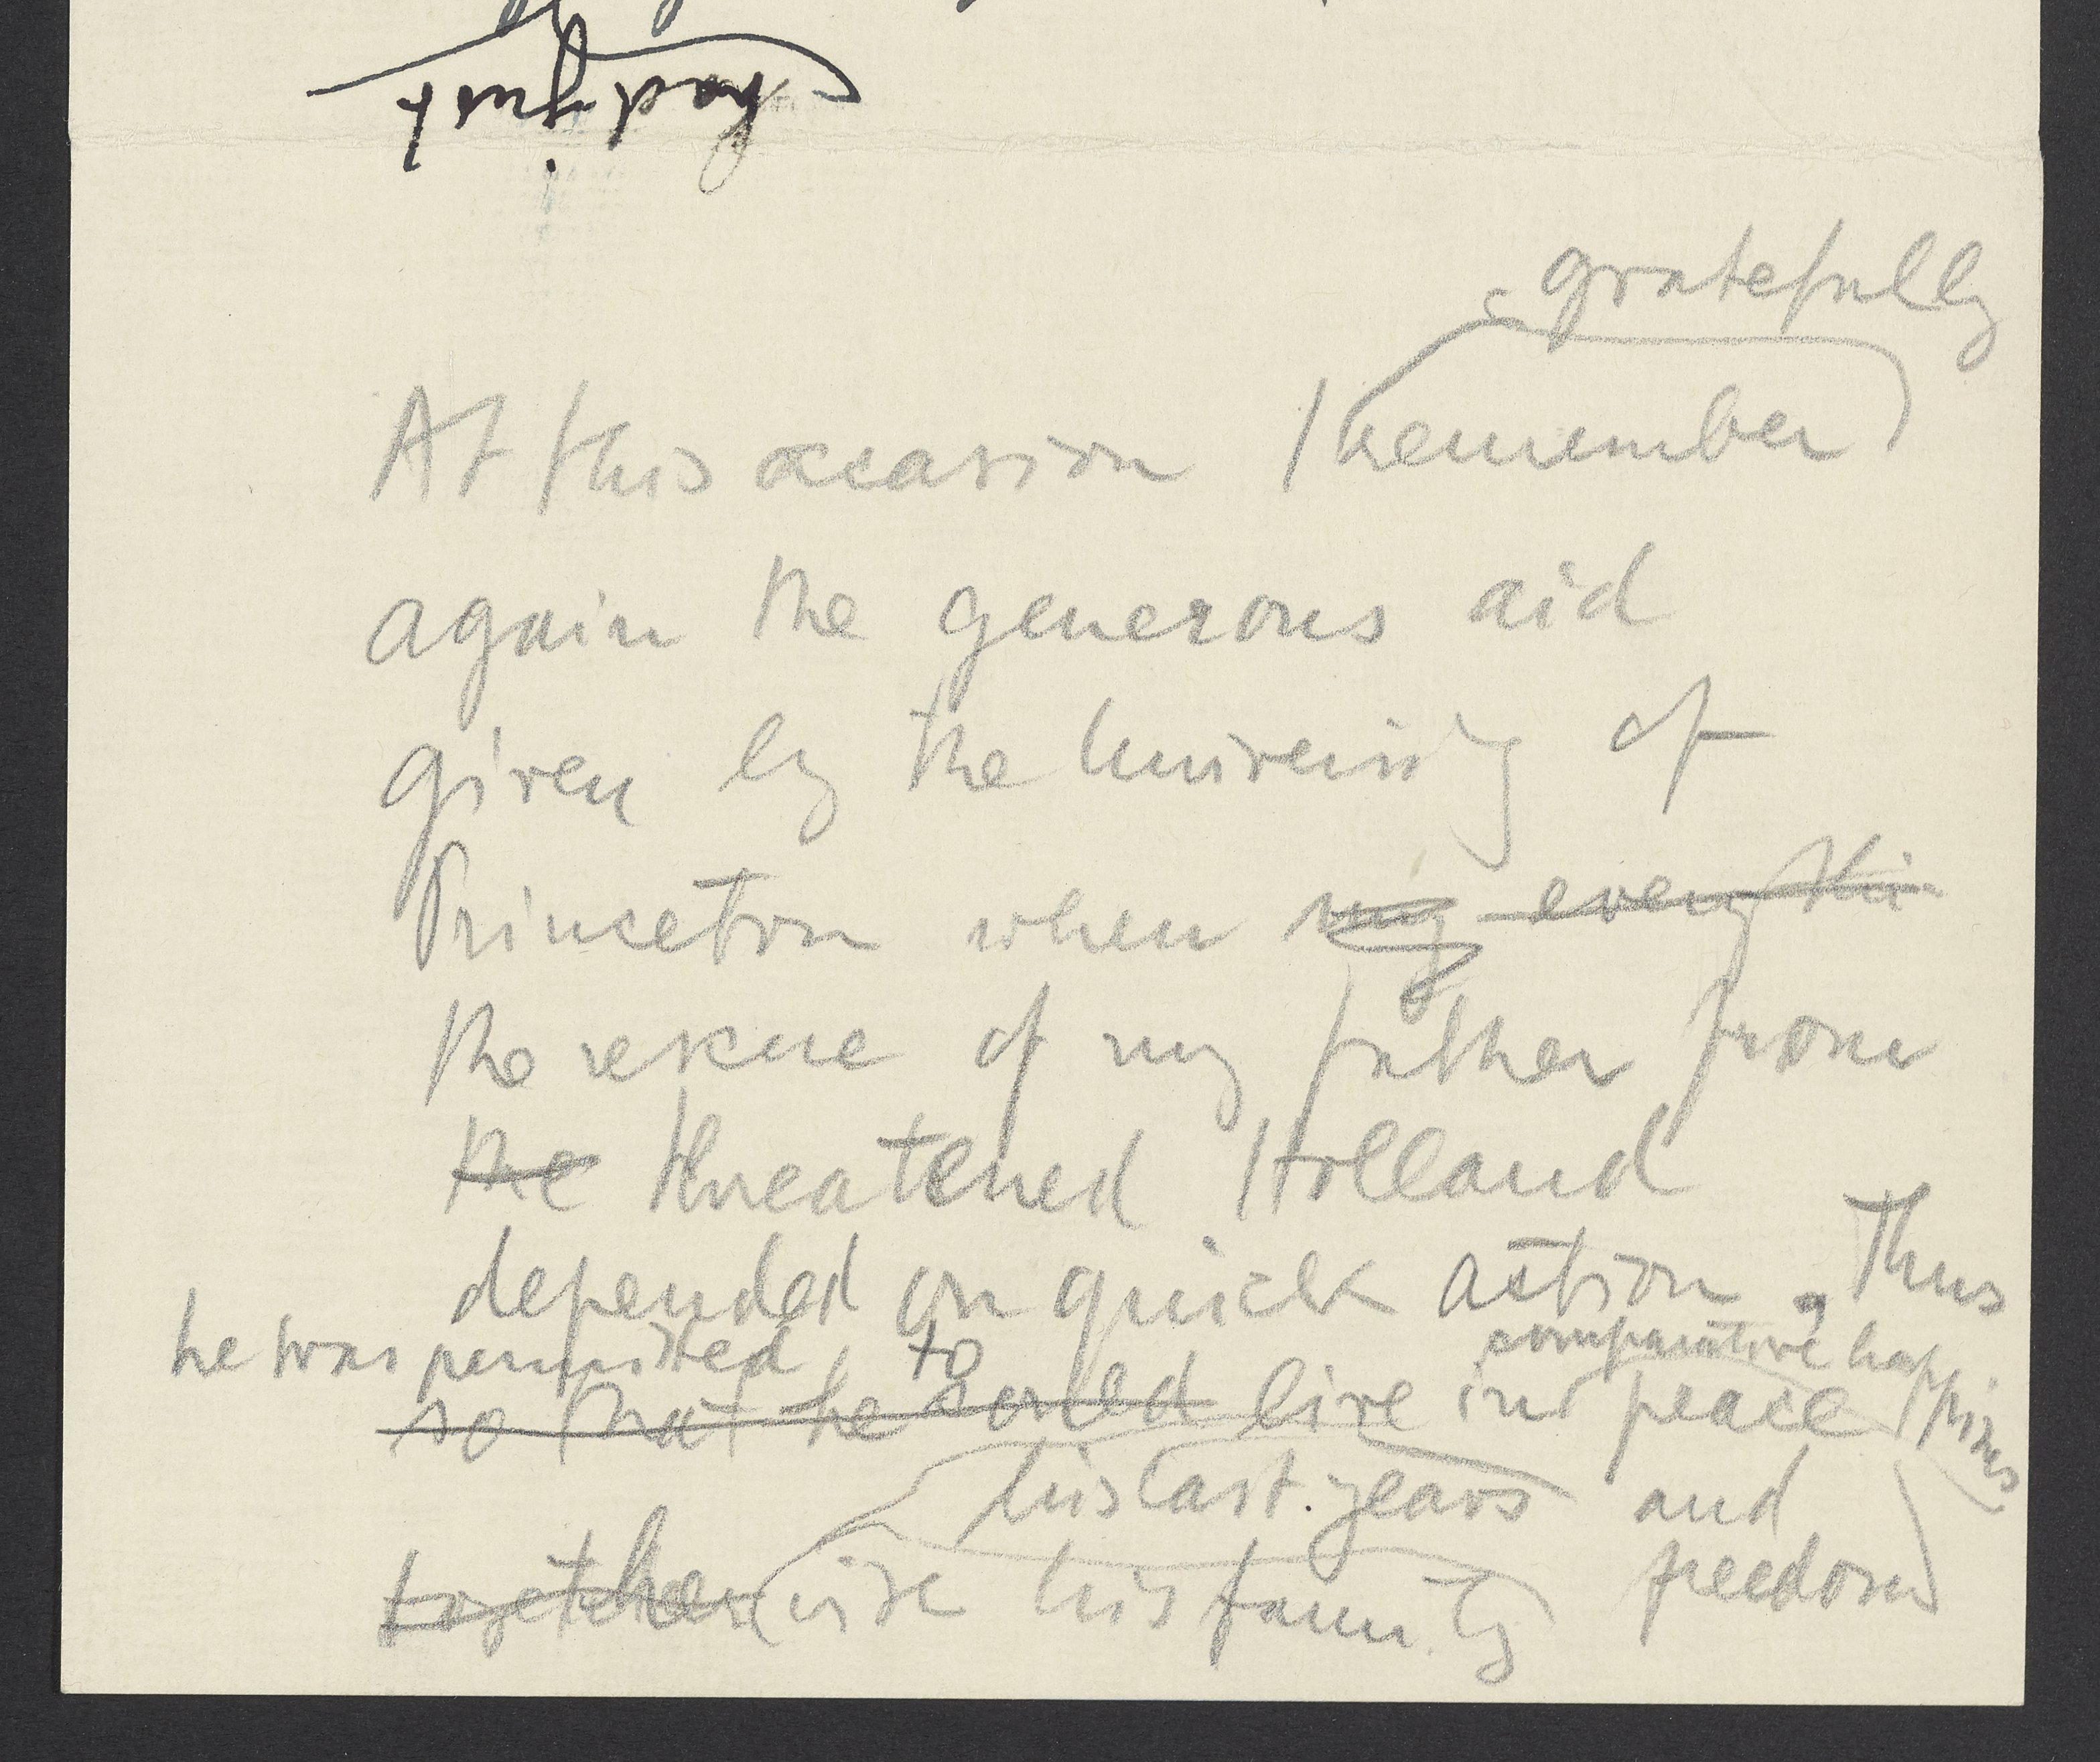 had just
gratefully
At this occasion I remember
again the generous aid
given by the University of
Princeton when my every thi
the rescue of my father from
the threatened Holland
depended on quick action. Thus
he was permitted to comparative happiness
so that he could live in peace
his last years and
together with his family freedom